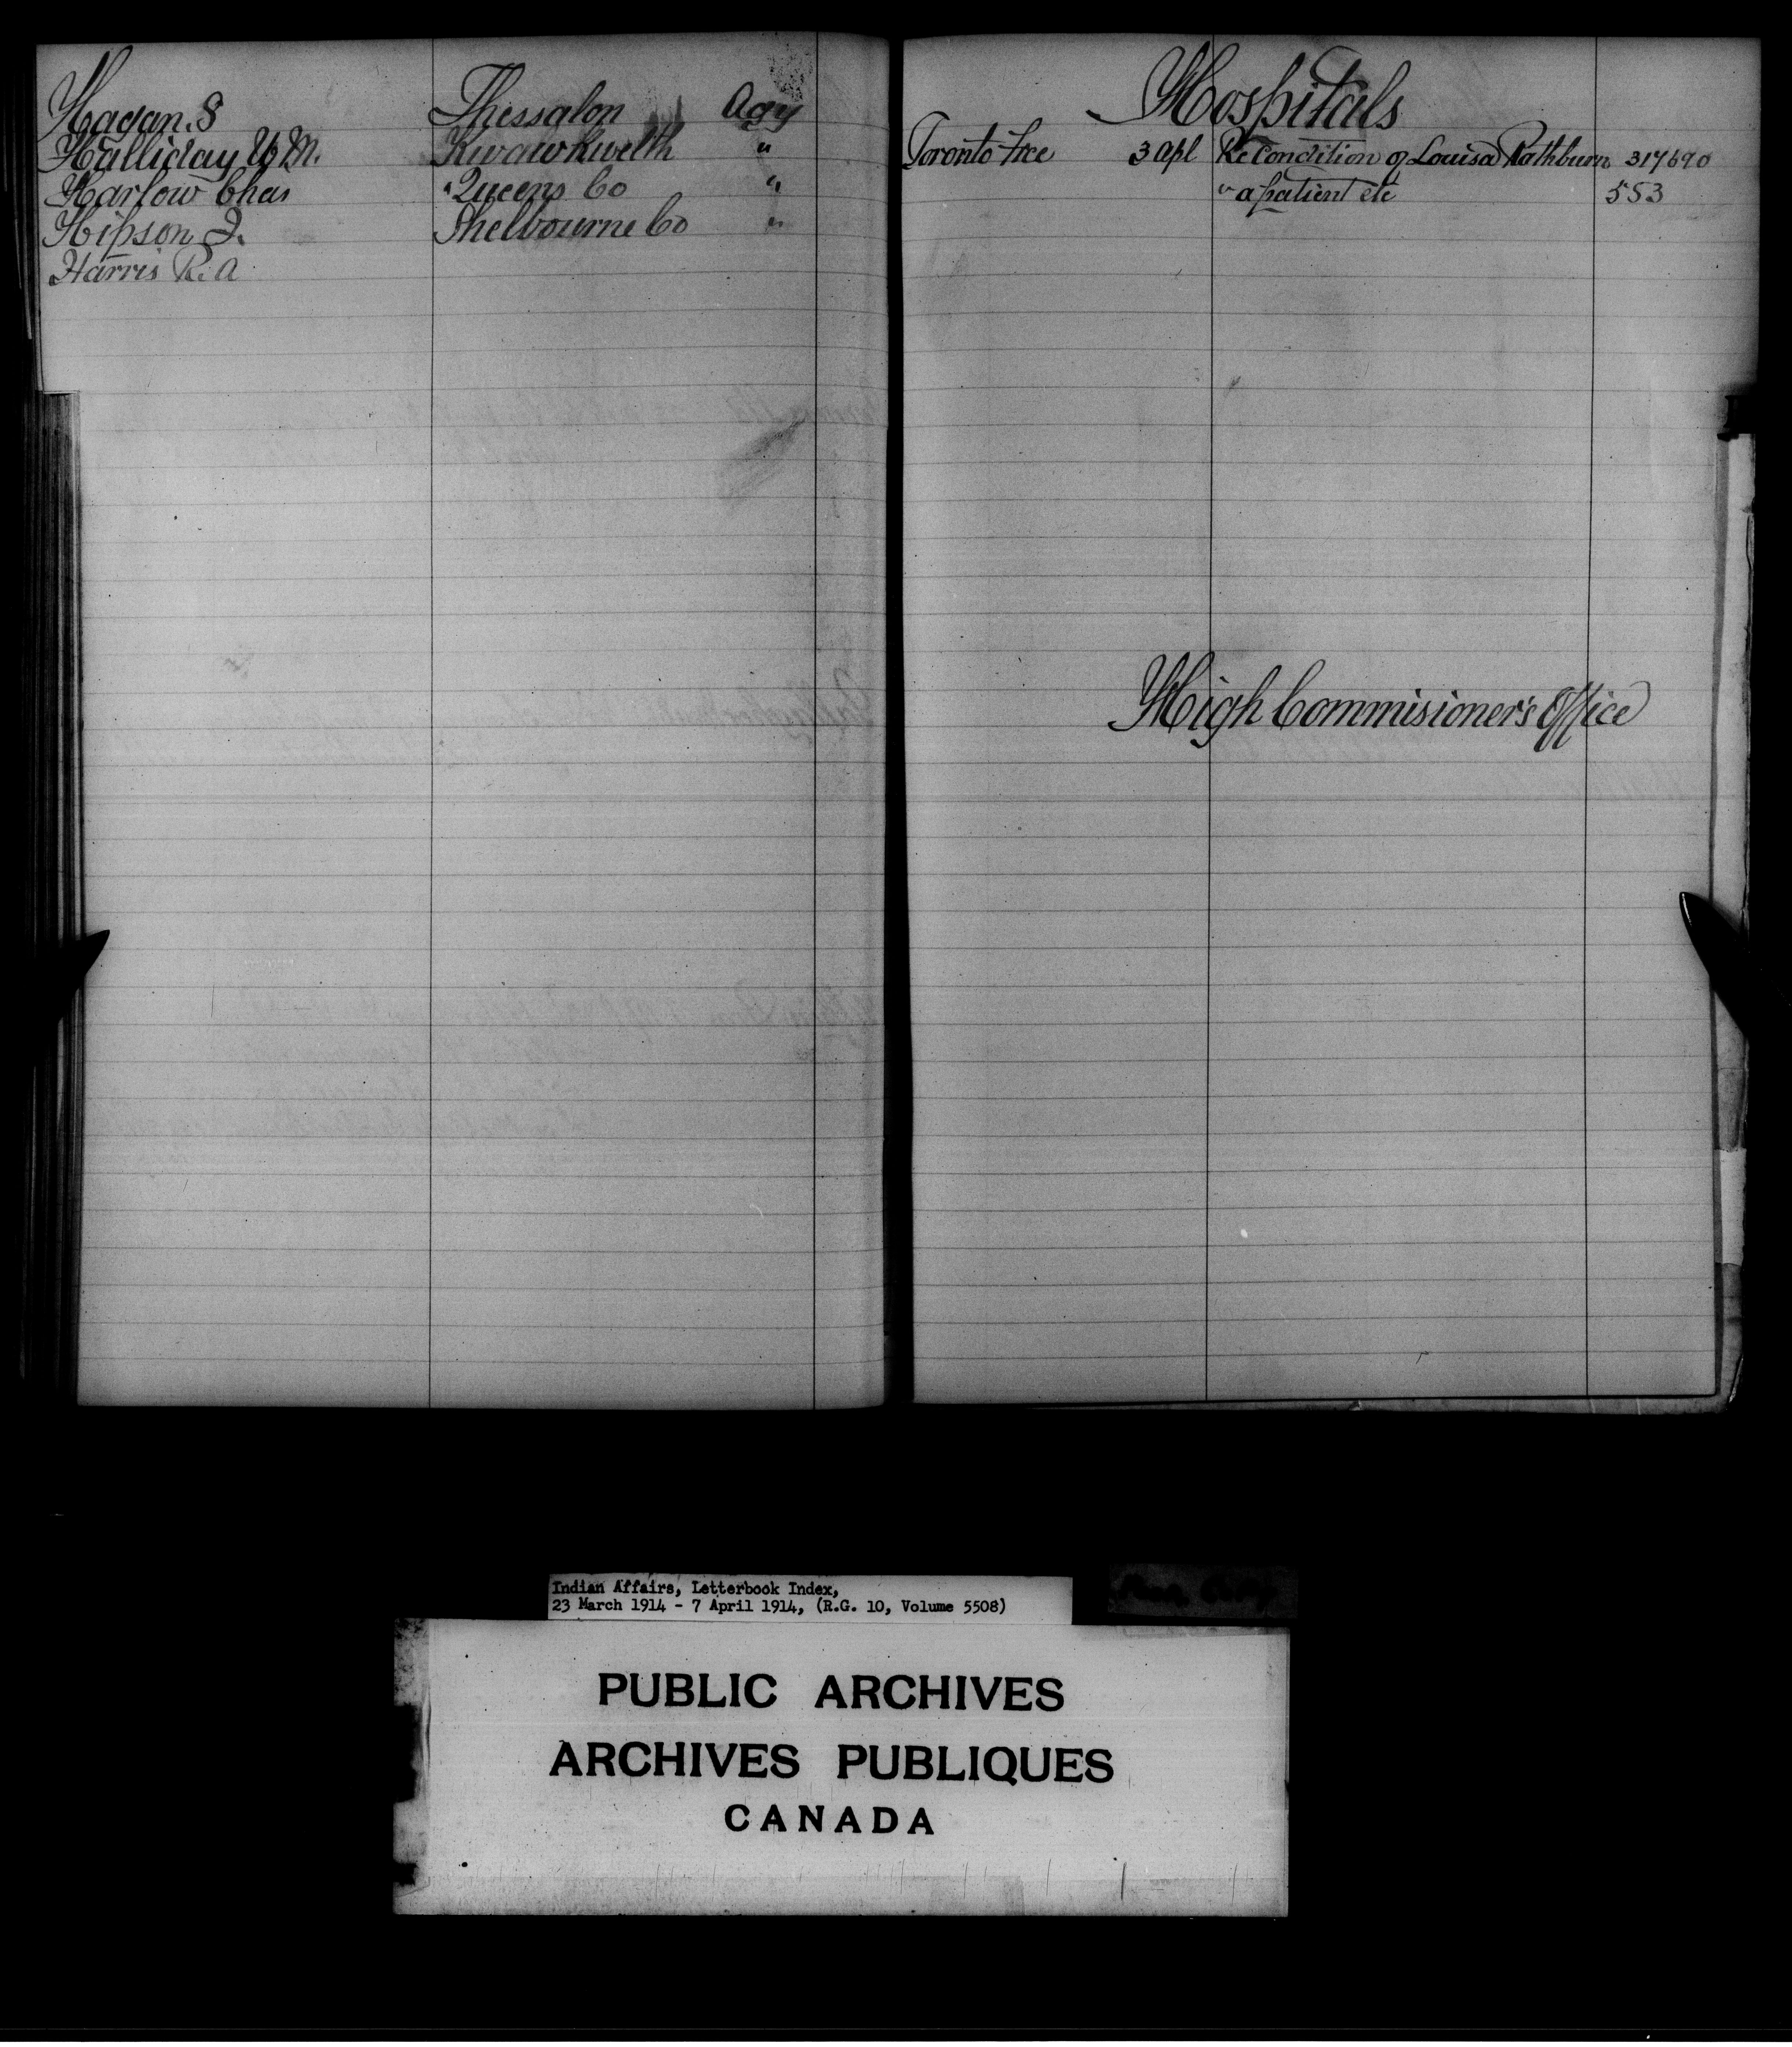 Hagan. S Thessalon Agy
Halliday W. M. Kwawkwelth "
Harlow Chas "Queens Co "
Hipson J. Shelbourne Co "
Harris R. A
Hospitals
Toronto Free 3 Apl Re Condition of Louisa Rathburn 317690
" a patient etc 553
High Commisioner's Office
Indian Affairs, Letterbook Index,
23 March 1914 - 7 April 1914, (R.G. 10, Volume 5508)
PUBLIC ARCHIVES
ARCHIVES PUBLIQUES
CANADA